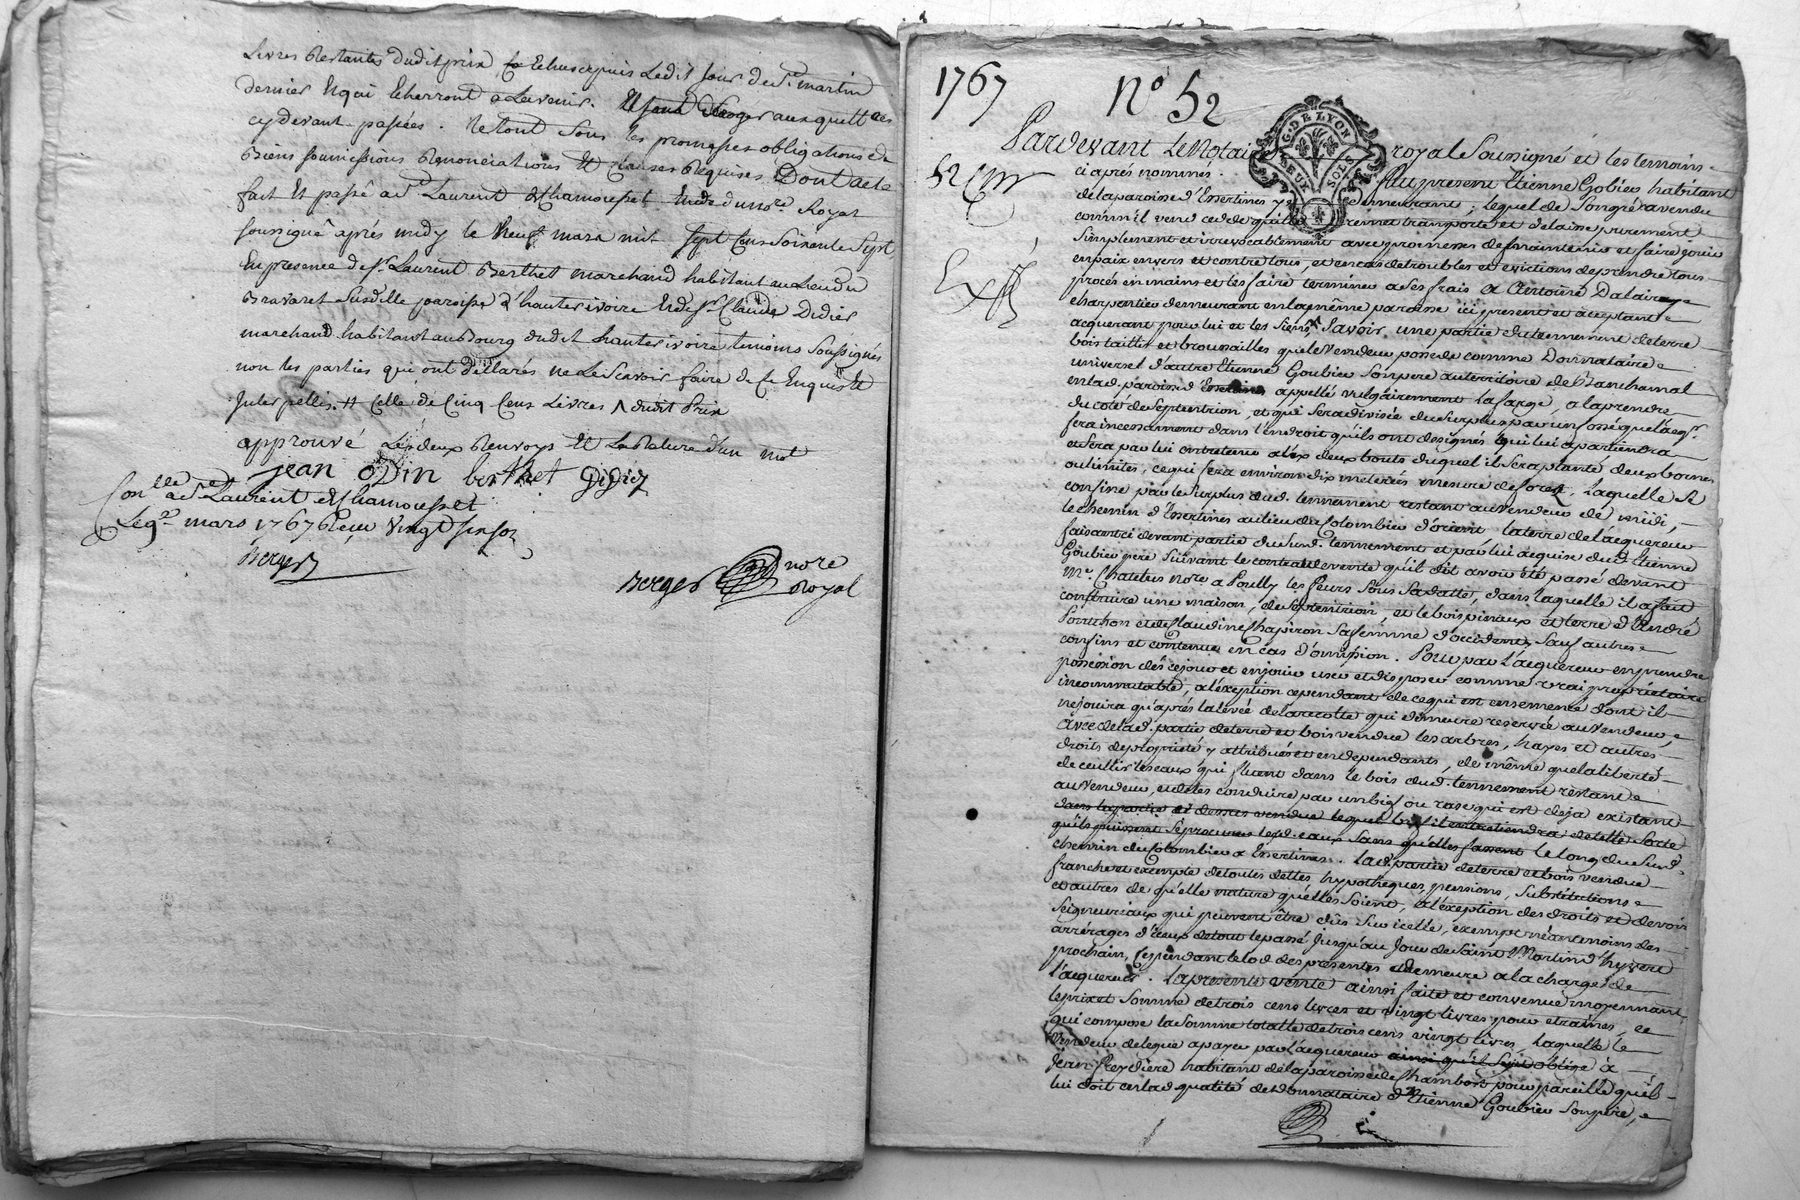 Livres Restantes dudit prix Echus depuis Ledit jour de St. martin
dernier Et qui Echerront a Lavenir. aux quittes
cy devant passées. Le tout Sous les promesses obligations de
Biens soumissions Renonciations Et Clauses Requises Dont acte
fait Et passé a St. Laurent de Chamousset Etude du no.re Royal
soussigné après midy le neuf mars mil Sept Cens Soixante Sept
En presence de Sr. Laurent Berthet marchand habitant au Lieu du
Bravaret Susditte paroisse d'hauterivoire Et de Sr. Claude Didier
marchand habitant au Bourg dudit hauterivoire temoins Soussignés
non les parties qui ont déclarés ne Le Scavoir faire de Ce Enquis Et
Interpellés. H Celle de Cinq Cens Livres ʌ dudit Prix
approuvé Les deux Renvoys Et La Rature d'un mot
jean odin berthet Didiez
Con.llé a St Laurent de Chamousset
Le 9 mars 1767 Reçu Vingt six sols
Berger
Berger no.re Royal
1767 No 52
G. DE LYON
DEUX SOLS
Pardevant Le Notaire royal Soussigné et les temoins
52
ci après nommés. fut present Etienne Gobieu habitant
de la paroisse d'Essertines y demeurant; Lequel de Son gré a vendu
comm'il vend cedde quitte remet transporte et delaisse purement
Simplement et irrevocablement avec promesses de maintenir et faire jouir
en paix envers et contre tous, et en cas de troubles et evictions de prendre tous
procés en mains et les faire terminer a Ses frais a Antoine Dalair
charpentier demeurant en la même paroisse ici present et aceptant
acquerant pour lui et les Siens, Savoir une partie du tennement de terre
bois taillis et brousailles que le vendeur possede comme Donnataire
universel d'autre Etienne Goubieu Son pere au territoire de Blanchamal
en lad. paroisse d'Essertines appellé vulgairement La farge, a la prendre
du coté de Septentrion, et qui Sera divisée du Surplus par un fossé que l'acqr.
fera incessament dans l'endroit qu'ils ont designés qui lui apartiendra
et Sera par lui entretenu aux deux bouts duquel il Sera planté deux bornes
ou limites, ce qui Sera environ dix meterés mesure de forez, Laquelle Se
confine par le Surplus dud. tennement restant au vendeur de midi,
le chemin d'Essertines au lieu du Colombier d'orient la terre de l'acquereur
faisant ci devant partie du Susd. tennement et par lui acquise dud. Etienne
Goubieu pere Suivant le contrat de vente qu'il dit avoir été passé devant
Me. Chatelus nore a Pouilly les feurs Sous Sa datte, dans laquelle il a fait
construire une maison, de Septentrion, et le bois pineaux et terre d'André
Ponchon et de Claudine Chapiron Sa femme d'occident, Sauf autres
confins et contenue en cas d'omission. Pour par l'acquereur en prendre
possession dès ce jour et en jouir user et disposer comme vrai proprietaire
incommutable, a l'exeption cependant de ce qui est ensemencé dont il
ne jouira qu'après la levée de la recolte qui demeure reservée au vendeur,
Avec de lad. partie de terre et bois vendue les arbres, hayes et autres
droits de proprieté y attribués et en dependants, de même que la liberté
de ceuillir les eaux qui fluent dans le bois dud. tennement restant
au vendeur, et de les conduire par un bief ou rase qui est deja existant
dans la partie ci dessus vendue lequel bief il entretiendra de telle Sorte
qu'ils puissent Se procurer lesd. eaux Sans qu'elles fassent le long du Susd.
chemin du Colombier a Essertines. Lad. partie de terre et bois vendue
franche et exempte de toutes dettes hypotheques, pensions, Substitutions
et autres de qu'elle nature qu'elles Soient, a l'exeption des droits et devoirs
Seigneuriaux qui peuvent être dûs Sur icelle, exempt néantmoins des
arrérages d'iceux de tout le passé jusqu'au Jour de Saint Martin d'hyvert
prochain, Cependant le lod des presentes demeure a la charge de
l'acquereur. La presente vente ainsi faite et convenue moyennant
le prix et Somme de trois cens livres et vingt livres pour etraines, ce
qui compose la Somme totalle de trois cens vingt livres, Laquelle le
Vendeur delegue a payer par l'acquereur ainsi qu'il S'y oblige à
Jean Freydiere habitant de la paroisse de Chambost pour pareille qu'il
lui doit en lad. qualité de donnataire d'Etienne Goubieu Son pere,